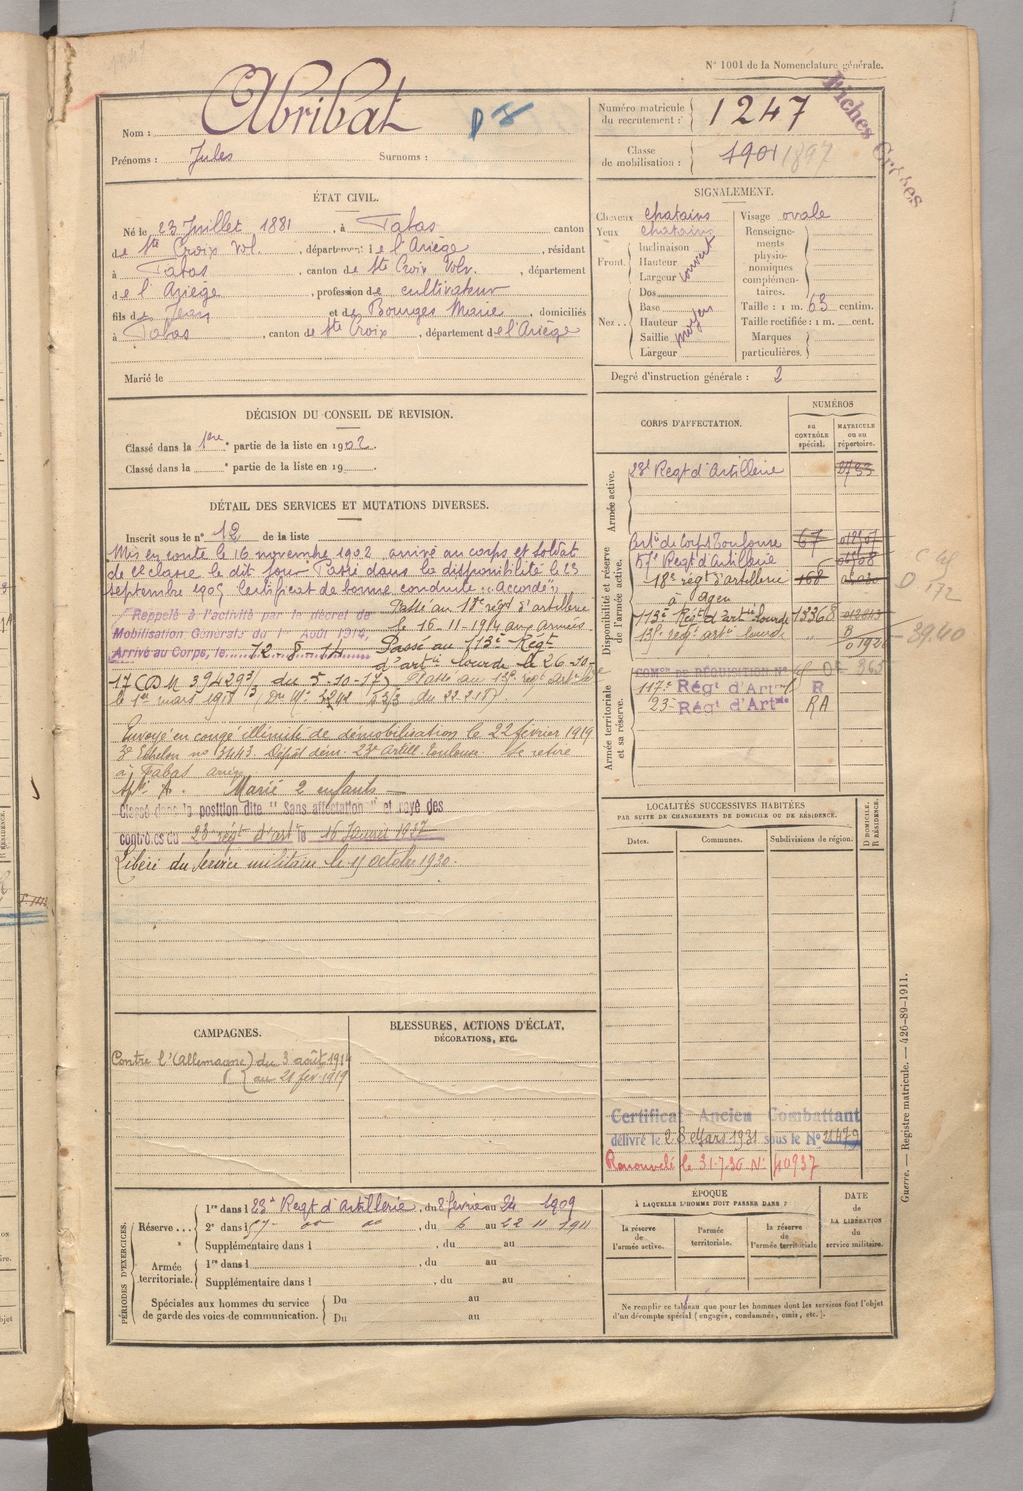 N° 1001 de la Nomenclature générale.
Fiches Grises
Nom : Abribat
Prénoms : Jules Surnoms :
Numéro matricule du recrutement : 1247
Classe de mobilisation : 1901 1897
ÉTAT CIVIL.
Né le 23 Juillet 1881, à Fabas canton
de Ste Croix Vol., département de l'Ariège, résidant
à Fabas, canton de Ste Croix Volv., département
de l'Ariège, profession de cultivateur
fils de Jean et de Bourges Marie, domiciliés
à Fabas, canton de Ste Croix, département de l'Ariège
Marié le
SIGNALEMENT.
Cheveux chatains
Yeux chatains
Front. Inclinaison
Hauteur
Largeur couvert
Nez. Dos
Base
Hauteur
Saillie moyen
Largeur
Visage ovale
Renseignements physionomiques complémentaires.
Taille : 1 m. 63 centim.
Taille rectifiée : 1 m. cent.
Marques particulières.
Degré d'instruction générale : 2
DÉCISION DU CONSEIL DE REVISION.
Classé dans la 1ere partie de la liste en 1902.
Classé dans la e partie de la liste en 19
DÉTAIL DES SERVICES ET MUTATIONS DIVERSES.
Inscrit sous le n° 12 de la liste
Mis en route le 16 novembre 1902 arrivé au corps et soldat
de 2e classe le dit jour Passé dans la disponibilité le 23
septembre 1905 Certificat de bonne conduite "Accordé"
Rappelé à l'activité par le décret de
Mobilisation Générale du 1er Août 1914,
Arrivé au Corps, le 12-8-14
Passé au 18e régt d'artillerie
le 16-11-1914 aux armées
Passé au 113e Régt
d'artie lourde le 26-10-
17 (DM 39429 3/ du 5-10-17) Passé au 13e regt artie lde
le 1er mars 1918
Envoyé en congé illimité de démobilisation le 22 février 1919
3e Echelon no 3443 Dépôt dém. 23e Artill. Toulouse. Se retire
à Fabas
Marié 2 enfants
Classé dans la position dite "Sans affectation" et rayé des
contrôles du 23 régt d'art le 16 Janvier 1927
Libéré du service militaire le 15 octobre 1930.
CORPS D'AFFECTATION.
NUMÉROS
au CONTRÔLE spécial.
MATRICULE ou au répertoire.
Armée active.
23e Regt d'Artillerie
Disponibilité et réserve de l'armée active.
Artie de Corps Toulouse 67
57e Regt d'Artillerie
18e régt d'artillerie 168
à Agen
113e Régt d'artie lourde 13368
13e regt artie lourde
39.40
Armée territoriale et sa réserve.
COMON DE RÉQUISITION N°
117e Régt d'Artie R
23e Régt d'Artie RA
LOCALITÉS SUCCESSIVES HABITÉES
PAR SUITE DE CHANGEMENTS DE DOMICILE OU DE RÉSIDENCE.
Dates. Communes. Subdivisions de région.
D DOMICILE.
R RÉSIDENCE.
Certificat Ancien Combattant
délivré le 28 Mars 1931 sous le N° 21479
Renouvelé le 31.7.36 N° 40937
CAMPAGNES.
Contre l'(Allemagne) du 3 août 1914
au 21 fev 1919
BLESSURES, ACTIONS D'ÉCLAT,
DÉCORATIONS, ETC.
PÉRIODES D'EXERCICES.
Réserve... 1re dans l 23e Regt d'Artillerie, du 8 février au 24 1909
2e dans l 57, du 6 au 22 11 1911
Supplémentaire dans l , du au
Armée territoriale. 1re dans l , du au
Supplémentaire dans l , du au
Spéciales aux hommes du service de garde des voies de communication. Du au
Du au
ÉPOQUE
À LAQUELLE L'HOMME DOIT PASSER DANS :
la réserve de l'armée active.
l'armée territoriale.
la réserve de l'armée territoriale
DATE de LA LIBÉRATION du service militaire.
Ne remplir ce tableau que pour les hommes dont les services font l'objet
d'un décompte spécial (engagés, condamnés, omis, etc.).
Guerre. — Registre matricule. — 426-89-1911.